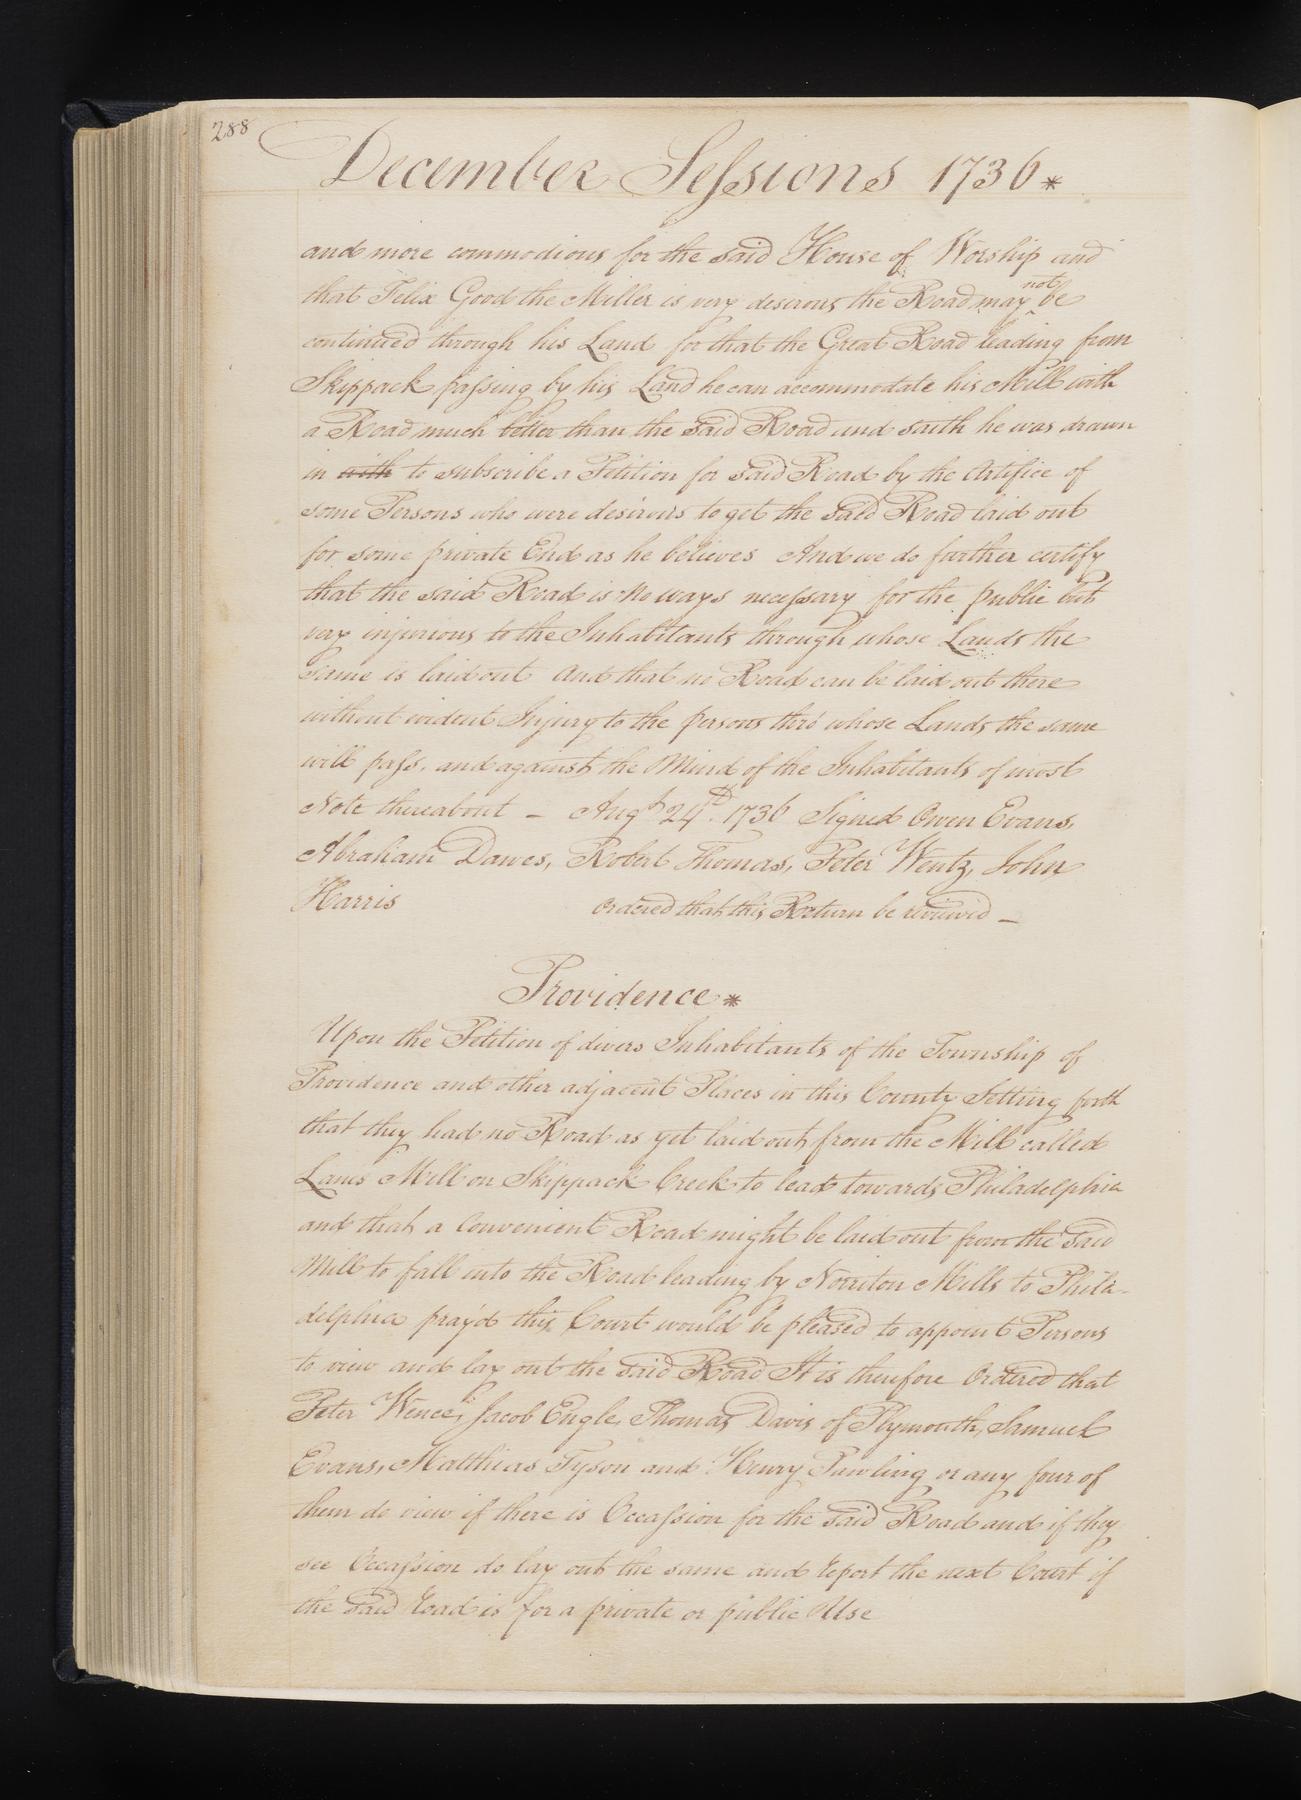 288
December Sessions 1736*
and more commodious for the said House of Worship and
that Felix Good the Miller is very desirous the Road may not be
continued through his Land for that the Great Road leading from
Skippack passing by his Land he can accommodate his Mill with
a Road much better than the said Road and saith he was drawn
in with to subscribe a Petition for said Road by the Artifice of
some Persons who were desirous to get the said Road laid out
for some private End as he believes And we do farther certify
that the said Road is no ways necessary for the public but
very injurious to the Inhabitants through whose Lands the
same is laid out And that no Road can be laid out there
without evident Injury to the persons thro' whose Lands the same
will pass. and against the Mind of the Inhabitants of most
Note thereabout – Augt 24th. 1736 Signed Owen Evans,
Abraham Dawes, Robert Thomas, Peter Wentz, John
Harris ordered that this Return be reviewed –
Providence*
Upon the Petition of divers Inhabitants of the Township of
Providence and other adjacent Places in this County Setting forth
that they had no Road as yet laid out from the Mill called
Lanes Mill on Skippack Creek to lead towards Philadelphia
and that a Convenient Road might be laid out from the said
Mill to fall into the Road leading by Norriton Mills to Phila-
delphia pray'd this Court would be pleased to appoint Persons
to view and lay out the said Road It is therefore Ordered that
Peter Wence, Jacob Engle, Thomas Davis of Plymouth, Samuel
Evans, Matthias Tyson and Henry Pawling or any four of
them do view if there is Occassion for the said Road and if they
see Occassion do lay out the same and report the next Court if
the said road is for a private or public Use